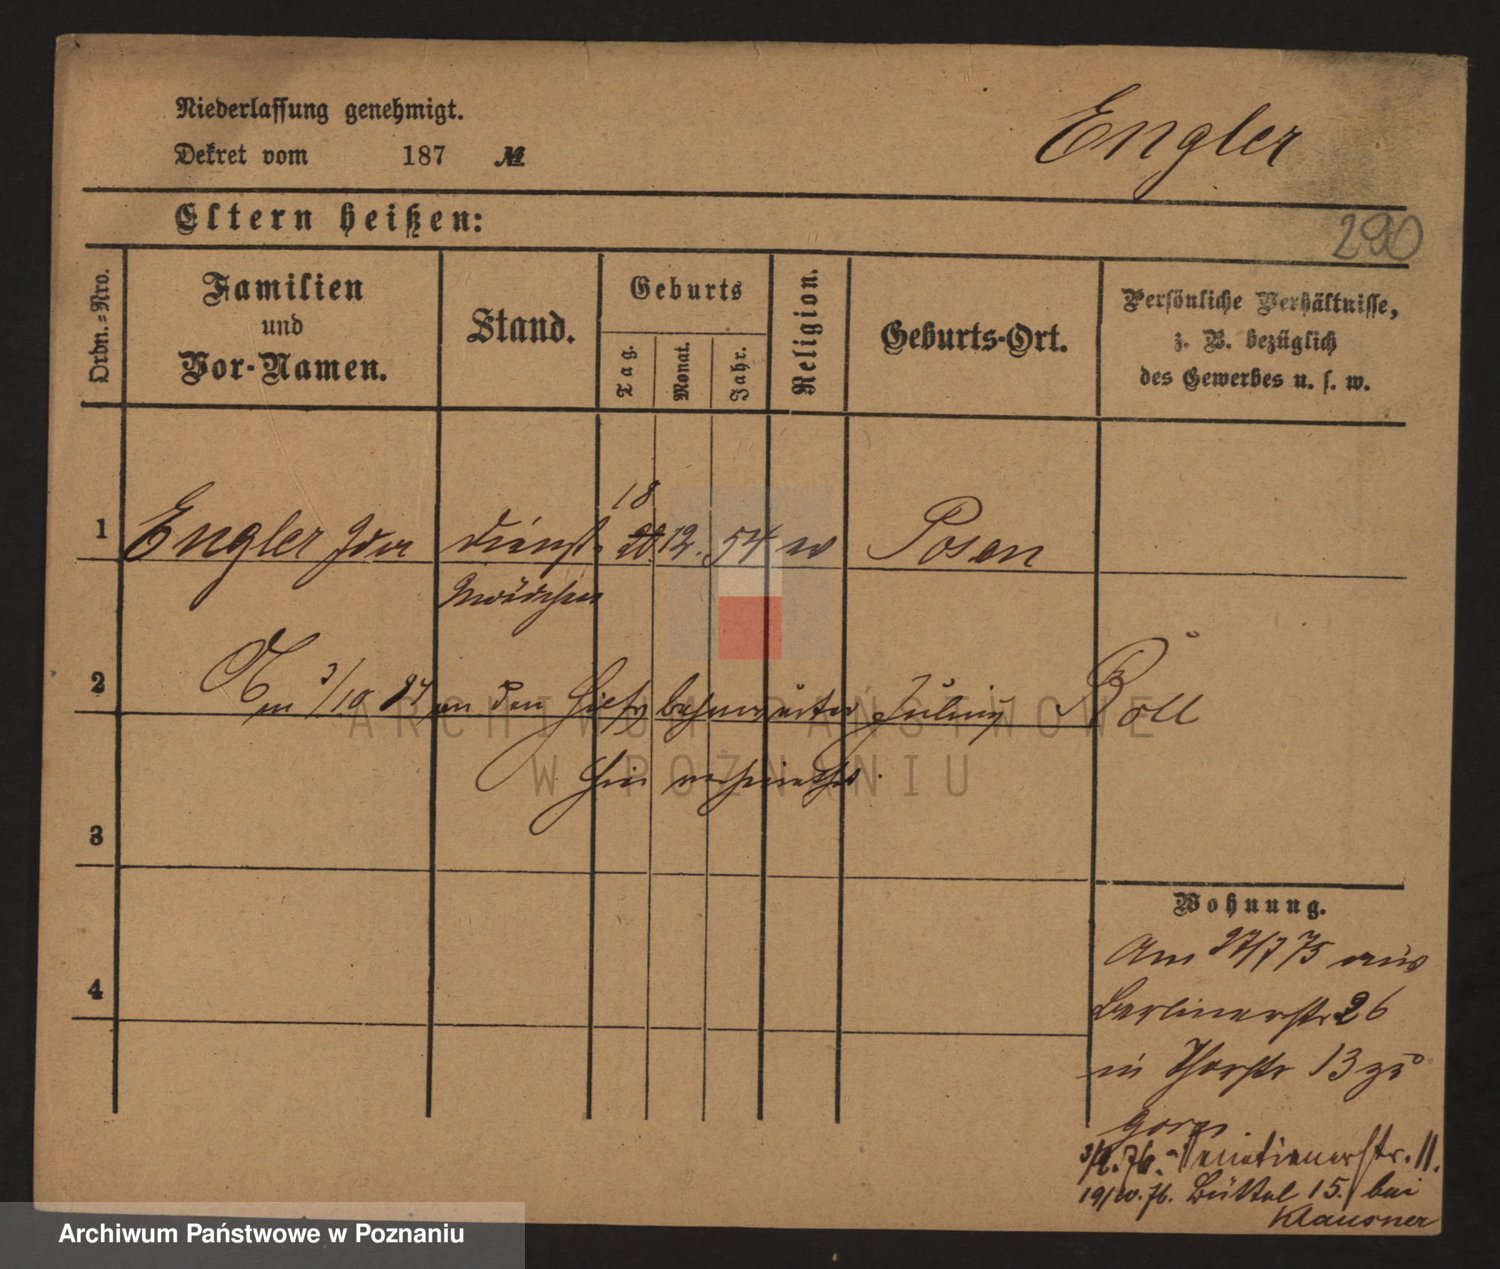 Niederlassung genehmigt.
Dekret vom 187 №
Engler
Eltern heißen:
290
Ordn.=Nro.
Familien
und
Vor-Namen.
Stand.
Geburts
Tag.
Monat.
Jahr.
Religion.
Geburts-Ort.
Persönliche Verhältnisse,
z. B. bezüglich
des Gewerbes u. s. w.
18
1 Engler Ida Dienst- 12. 54 Posen
Mädchen
2 3/10 an den Julius Röll
hier
3
Wohnung.
Am 27/7 75 aus
Berlinerstr 26
4
in Thorstr 13 zu
76. Venetianerstr. 11.
19/10. 76. Büttel 15. bei
Klausner
ARCHIWUM PAŃSTWOWE
W POZNANIU
Archiwum Państwowe w Poznaniu